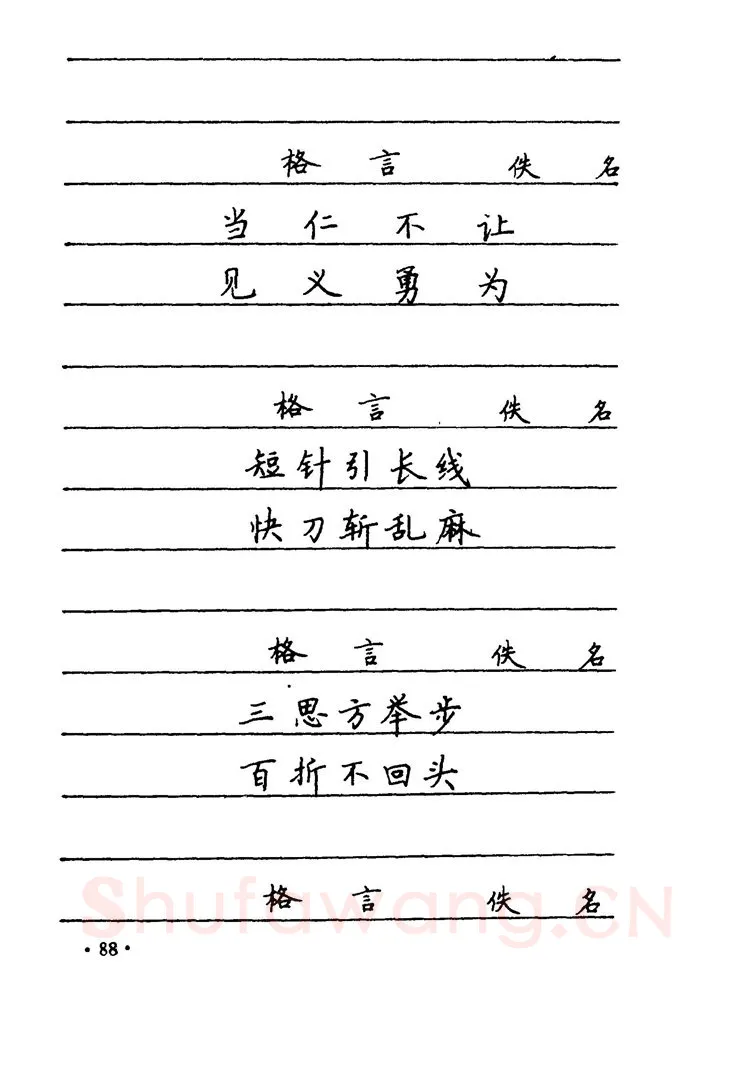 格言 佚名
当仁不让
见义勇为
格言 佚名
短针引长线
快刀斩乱麻
格言 佚名
三思方举步
百折不回头
格言 佚名
Shufawang.CN
·88·